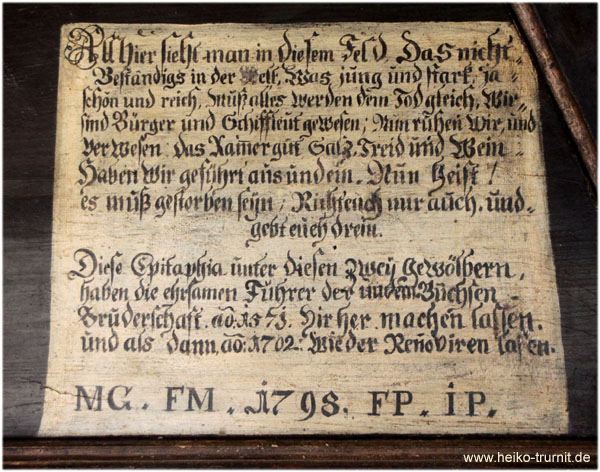 Allhier sieht man in diesem Feld, Das nicht-
Beständigs in der Welt, Was jung und stark, ja-
schön und reich, Muß alles werden dem Tod gleich, Wir-
sind Bürger und Schiffleut gewesen, Nun ruhen Wir, und
Verwesen. Das Kam̅ergut Salz, Treid und Wein-
Haben Wir geführt aus und ein. Nun heist /
es muß gestorben seyn, Richt euch nur auch. und-
gebt euch drein.
Diese Epitaphia unter diesen Zweÿ Gewölbern,
haben die ehrsamen Führer der Büchsen
Bruderschaft. aõ. 1571. Hir her machen lassen.
und als dann, aõ: 1702: Wieder Renoviren lassen.
MG. FM. 1798. FP. iP.
www.heiko-trurnit.de